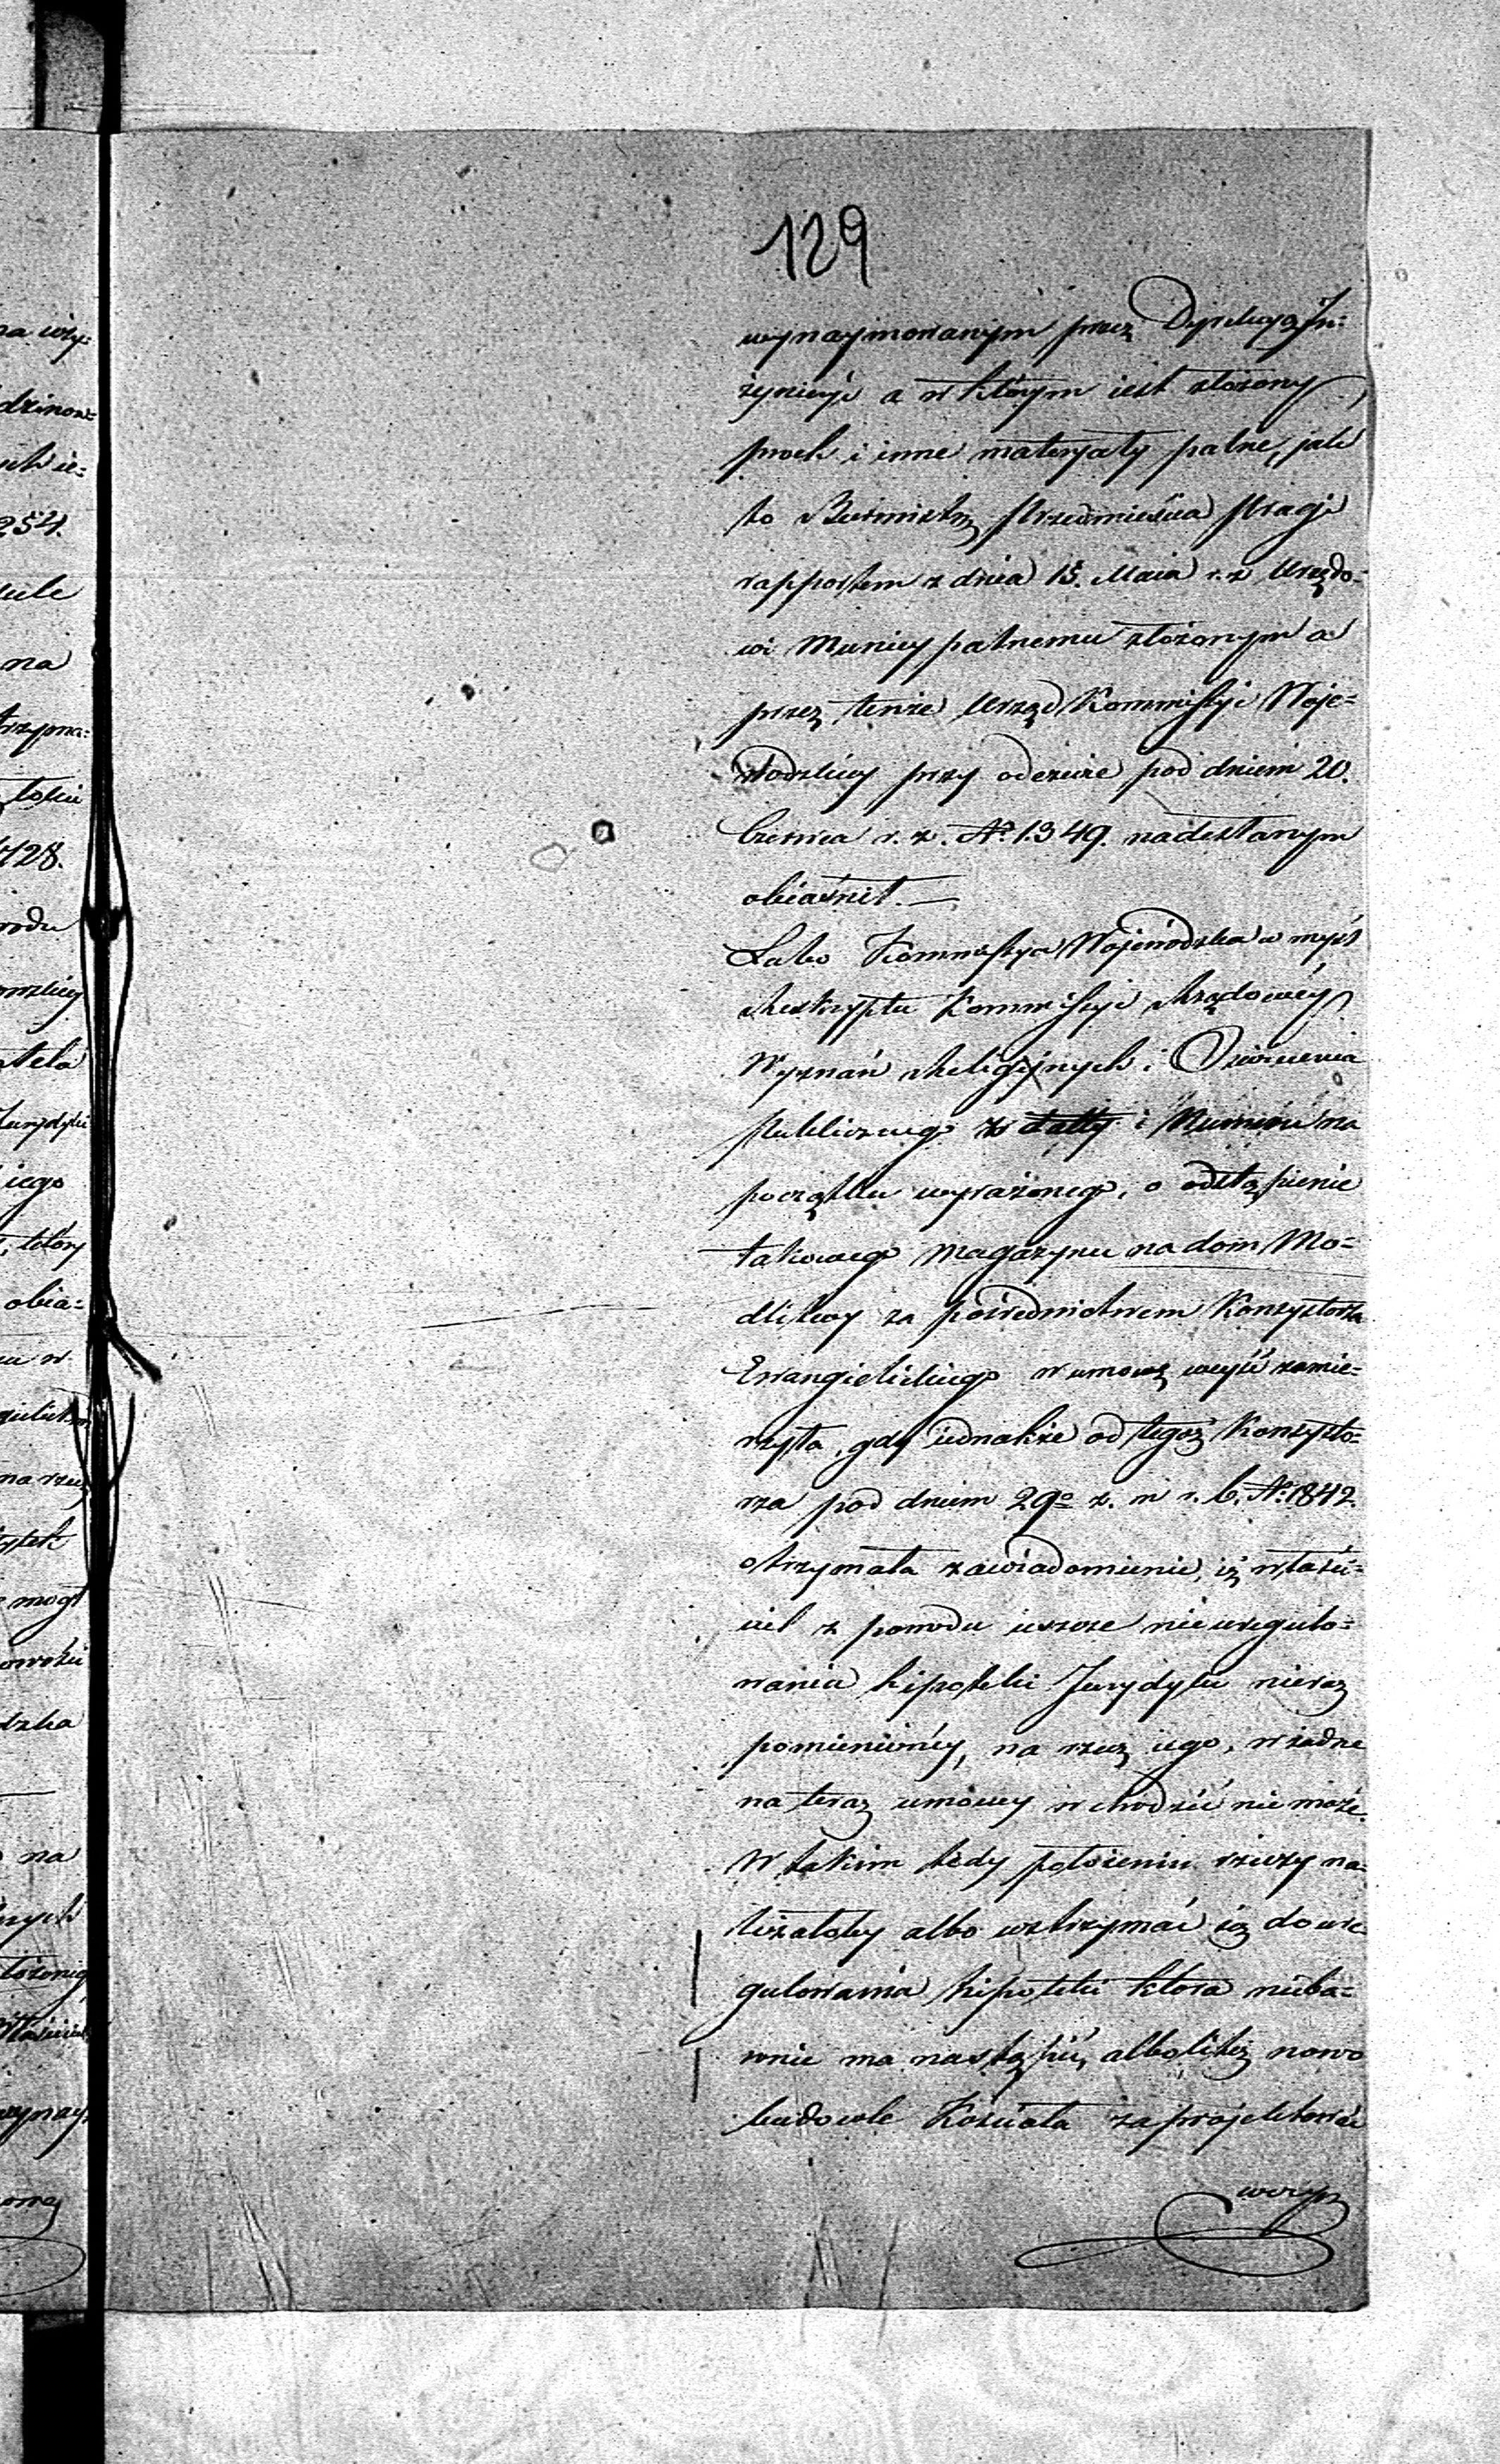 129
wynaymowanym przez Dyrekcyą In=
żynieryi a w którym iest złożony
proch i inne materyały palne, jak
to Burmistrz Przedmieścia Pragi
rapportem z dnia 15. Maia r. z Urzędo=
wi Municypalnemu złożonym a
przez tenże Urząd Kommissyi Woje=
wodzkiey przy odezwie pod dniem 20.
Czerwca r. z. No. 1349. nadesłanym
obiaśnił. —
Lubo Kommissya Wojewódzka w myśl
Reskryptu Kommissyi Rządowéy
Wyznań Religijnych i Oświecenia
publicznego z daty i Numeru na
początku wyrażonego, o odstąpienie
takowego magazynu na dom Mo=
dlitwy za pośrednictwem Konsystorza
Ewangielickiego w umowę weyść zamie=
rzyła, gdy iednakże od tegoż Konsysto=
rza pod dniem 29o z. m r. b. No. 1842
otrzymała zawiadomienie, iż właści=
ciel z powodu ieszcze nie uregulo=
wania hipoteki Jurydyki nieraz
pomienionéy, na rzecz iego, w żadne
na teraz umowy wchodzić nie może.
W takim tedy położeniu rzeczy na=
leżałoby albo wstrzymać się do ure
gulowania hipoteki która nieba=
wnie ma nastąpić, albo też nowo
budowle Kościoła zaprojektować
na wzy=
dzinow=
254.
na
trzyma=
728.
iego
, który
obia=
mogł
na